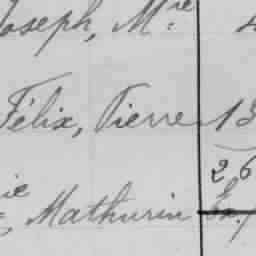 Joseph, Mie
Félix, Pierre 13
26
ie
, Mathurin